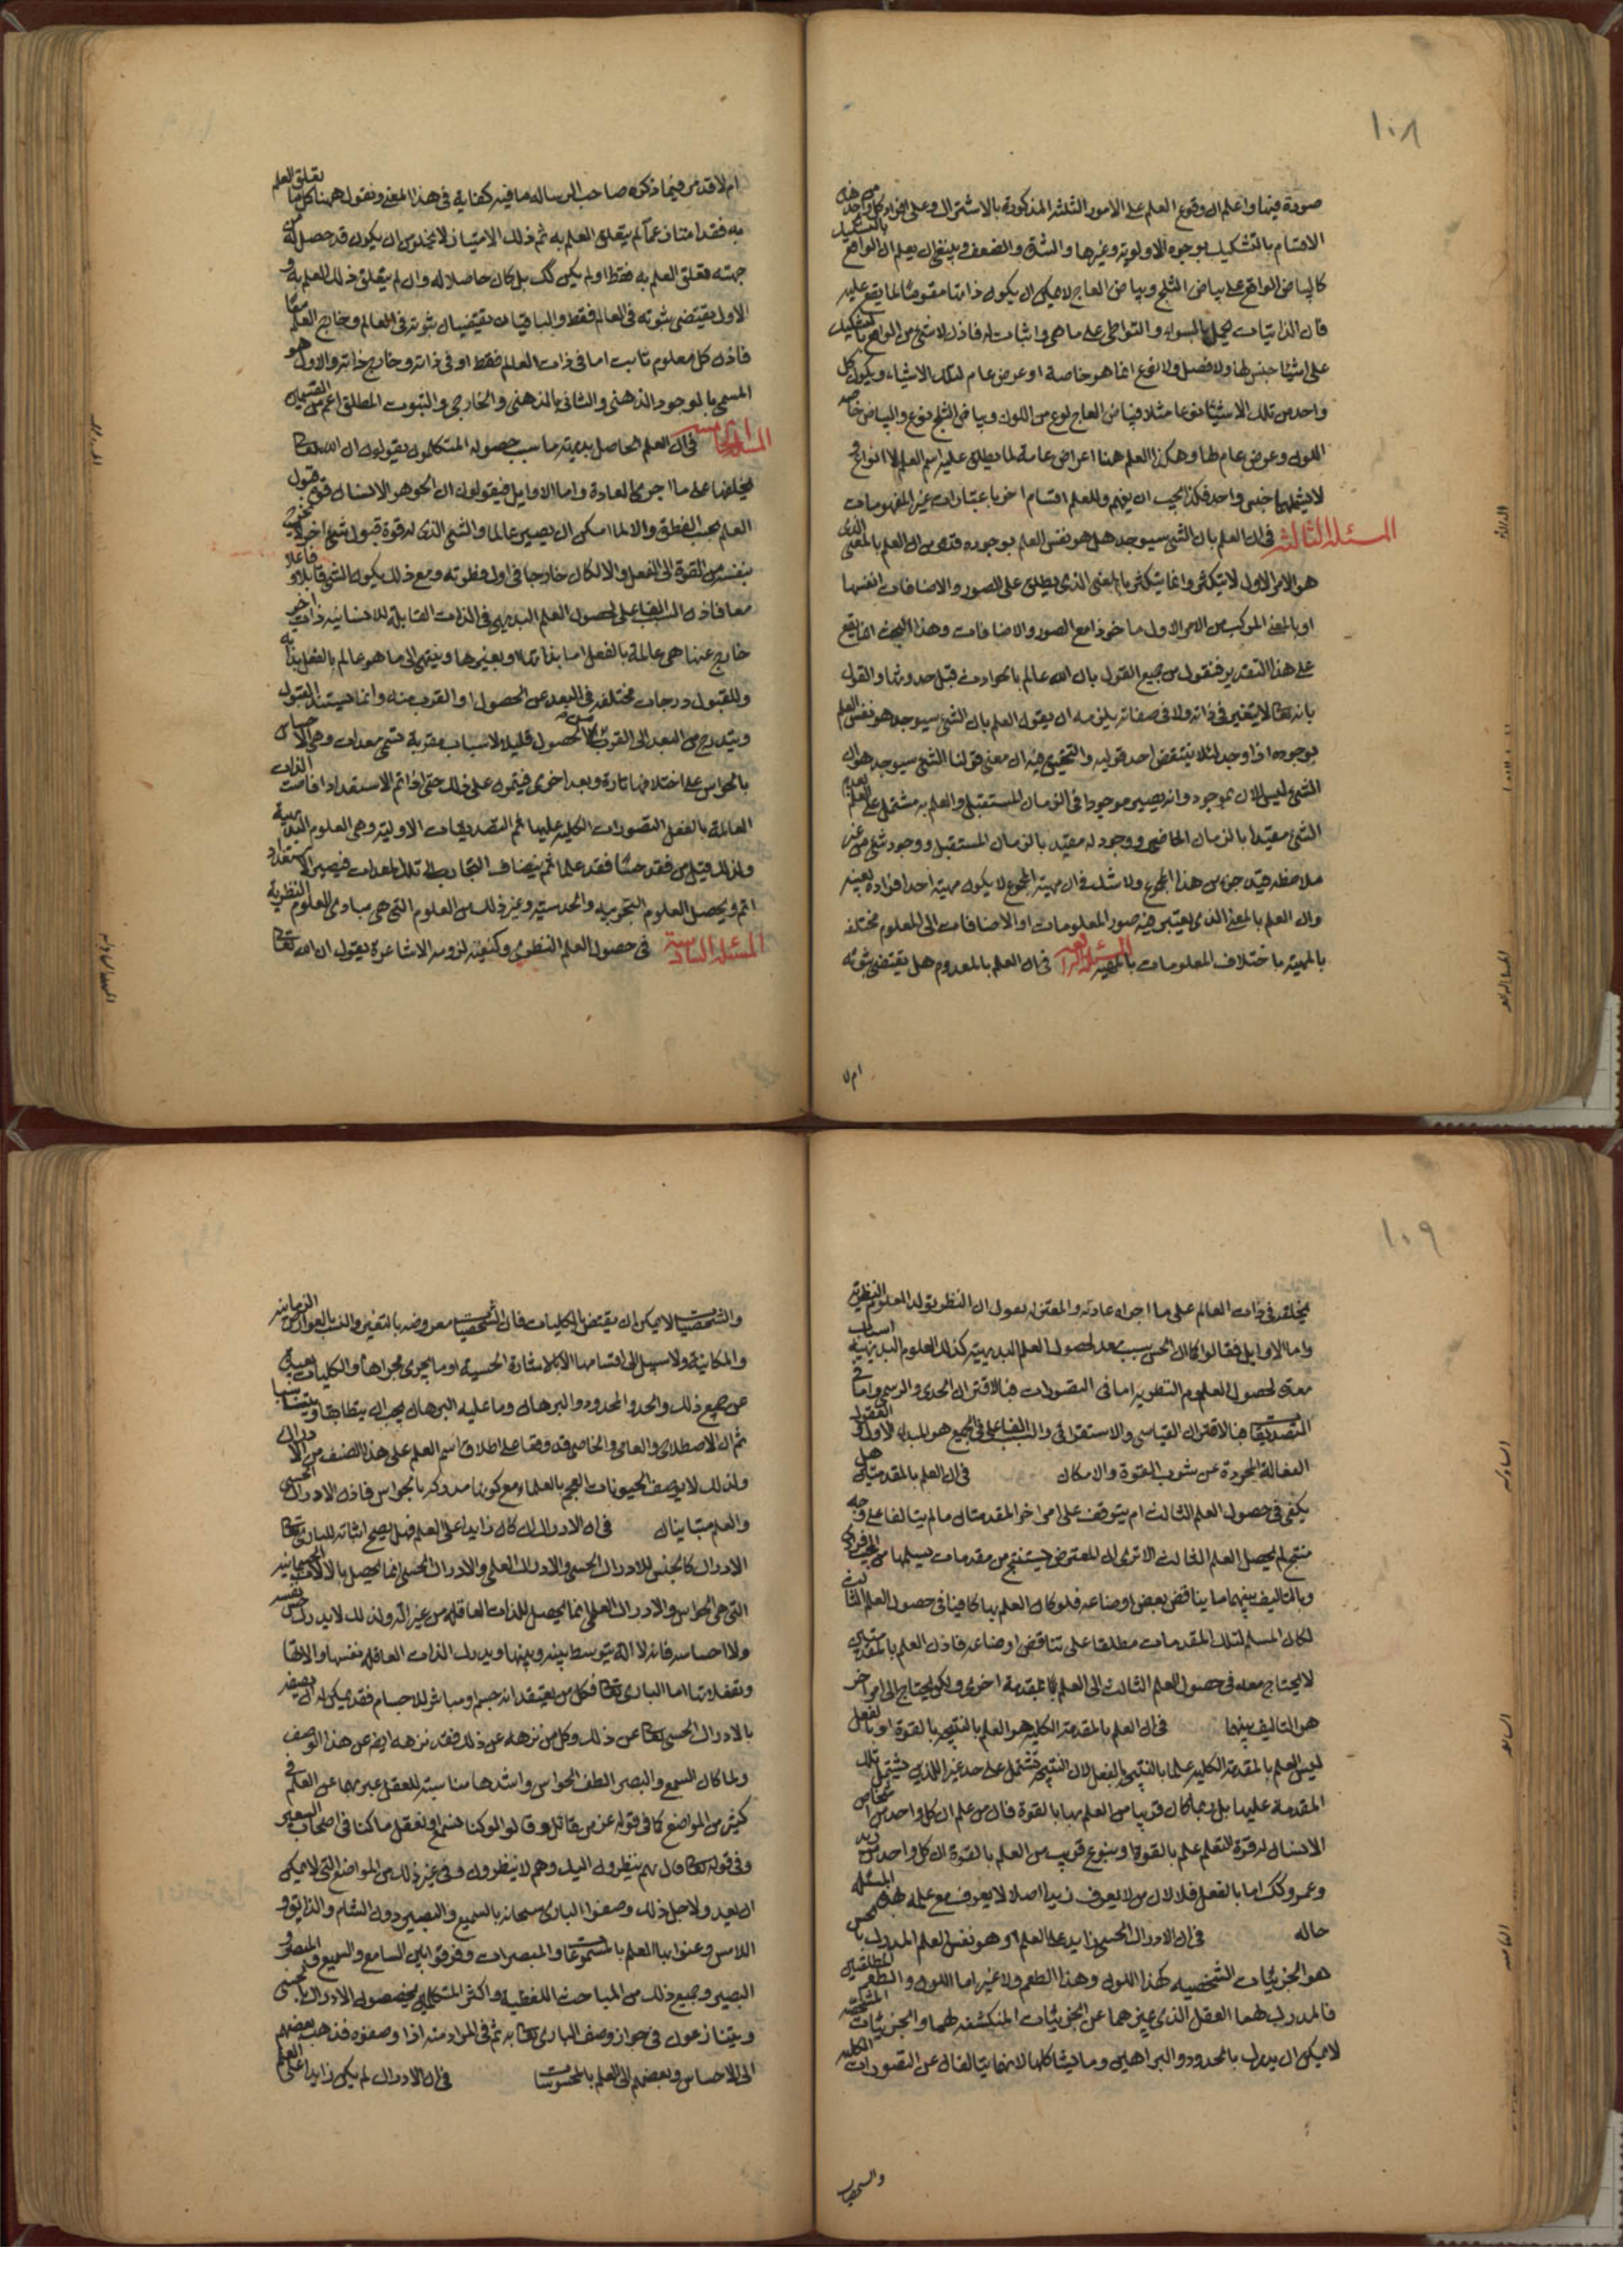 ١٠٨
صورة فيها واعلم ان وقوع العلم على الامور الثلثة المذكورة بالاشتراك وعلى افراد كل واحد من هذه
الاقسام بالتشكيك بوجوه الاولوية وغيرها والشدة والضعف وينبغي ان يعلم ان الواقع بالتشكيك
كالبياض الواقع على بياض الثلج وبياض العاج لا يمكن ان يكون ذاتيا مقوما لما يقع عليه
فان الذاتيات تحمل بالسواء والتواطي على ما هي ذاتيات له فاذن لا شيء من الواقع بالتشكيك
على اشياء جنس لها ولا فصل ولا نوع انما هو خاصة او عرض عام لتلك الاشياء ويكون كل
واحد من تلك الاشياء نوعا مثلا فبياض العاج نوع من اللون وبياض الثلج نوع والبياض خاصة
اللون وعرض عام لهما وهكذا العلم هنا اعراض عامة لما يطلق عليه اسم العلم لا انواع
لا يشملها جنس واحد هكذا يجب ان يفهم وللعلم اقسام اخر باعتبارات غير المفهومات
المسئلة الثالثة في ان العلم بان الشي سيوجد هل هو نفس العلم بوجوده قد مر ان العلم بالمعنى الذي
هو الامر الاول لا يتكثر وانما يتكثر بالمعنى الذي يطلق على الصور والاضافات انفسها
او بالمعنى المركب من الامر الاول ماخوذا مع الصور والاضافات وهذا البحث انما يقع
على هذا التقدير فنقول من جمع القول بان الله عالم بالحوادث قبل حدوثها والقول
بانه تعا لا يتغير في ذاته ولا في صفاته يلزمه ان يقول العلم بان الشي سيوجد هو نفس العلم
بوجوده اذا وجد لئلا ينتقض احد قوليه والتحقيق فيه ان معنى قولنا الشي سيوجد هو ان
الشي ليس الان بموجود وانه يصير موجودا في الزمان المستقبل والعلم به مشتمل على العلم بعدم
الشي مقيدا بالزمان الحاضر ووجود له مقيد بالزمان المستقبل ووجود شي من غير
ملاحظة قيد جزء من هذا المجموع ولا شك في ان مهية المجموع لا يكون مهية احد افراده بعينه
وان العلم بالمعنى الذي يعتبر فيه صور المعلومات او الاضافات الى المعلوم مختلفة
بالمهية باختلاف المعلومات بالمهية المسئلة الرابعة في ان العلم بالمعدوم هل يقتضي ثبوته
ام لا
ام لا قد مر فيما ذكره صاحب الرسالة ما فيه كفاية في هذا المعنى ونقول ههنا كل ما تعلق العلم
به فقد امتاز عما لم يتعلق العلم به ثم ذلك الامتياز لا يخلو من ان يكون قد حصل له من
جهة تعلق العلم به فقط او لم يكن كك بل كان حاصلا له وان لم يتعلق ذلك العلم به و
الاول يقتضي ثبوته في العالم فقط والباقيان يقتضيان ثبوته في العالم وخارج العالم معا
فاذن كل معلوم ثابت اما في ذات العالم فقط او في ذاته وخارج ذاته والاول هو
المسمى بالموجود الذهني والثاني بالذهني والخارجي والثبوت المطلق اعم من القسمين
المسئلة الخامسة في ان العلم الحاصل بديهة ما سبب حصوله المتكلمون يقولون ان الله تعا
يخلقها على ما اجرى العادة واما الاوايل فيقولون ان الجوهر الانساني قوي قبول
العلم بحسب الفطرة والا لما امكن ان يصير عالما والشي الذي له قوة قبول شي اخر لا يخرج
بنفسه من القوة الى الفعل والا لكان خارجا في اول فطرته ومع ذلك يكون الشي قابلا وفاعلا
معا فاذن السبب الفاعلي لحصول العلم البديهي في الذات القابلة للانسانية ذات اخر
خارج عنها هي عالمة بالفعل اما بذاتها او بغيرها وينتهي الى ما هو عالم بالفعل بذاته
وللقبول درجات مختلفة في البعد عن الحصول او القرب منه وانما يستند القبول
ويتدرج من البعد الى القرب من الحصول قليلا لاسباب مقربة تسمى معدات وهي الاحساس
بالحواس على اختلافها تارة وبعد اخرى فيتمرن على ذلك حتى اذا تم الاستعداد افاضت الذات
العالمة بالفعل التصورات الكلية عليها ثم التصديقات الاولية وهي العلوم البديهية
ولذلك قيل من فقد حسا فقد علما ثم ينضاف التجارب الى تلك المعدات فيصير الاستعداد
اتم ويحصل العلوم التجربية والحدسية وغير ذلك من العلوم التي هي مبادي العلوم النظرية
المسئلة السادسة في حصول العلم النظري وكيفية لزومه الاشاعرة يقول ان الله تعا
١٠٩
يخلقه في ذات العالم على ما اجراه عادته والمعتزلة يقول ان النظر يولد العلوم النظرية
واما الاوايل فقالوا كما كان الحس سبب معد لحصول العلم البديهية كذلك العلوم البديهية اسباب
معدة لحصول العلوم النظرية اما في التصورات فبالاقتران الحدي والرسمي واما في
التصديقات فبالاقتران القياسي والاستقرائي والسبب الفاعلي في الجميع هو المبدا الاول والعقول
الفعالة المجردة عن شوب القوة والامكان في ان العلم بالمقدمتين هل
يكفي في حصول العلم الثالث ام يتوقف على امر اخر المقدمتان ما لم يتالفا على وجه
منتج لم يحصل العلم الثالث الا ترى ان المعترض يستنتج من مقدمات يسلمها
وبالتاليف بينهما ما يناقض بعض اوضاعه فلو كان العلم بها كافيا في حصول العلم الثالث
لكان المسلم لتلك المقدمات مطلقا على تناقض اوضاعه فاذن العلم بالمقدمتين
لا يحتاج معه في حصول العلم الثالث الى العلم بمقدمة اخرى ولكن يحتاج الى امر اخر
هو التاليف بينهما في ان العلم بالمقدمة الكلية هو العلم بالنتيجة بالقوة او بالفعل
ليس العلم بالمقدمة الكلية علما بالنتيجة بالفعل لان النتيجة تشتمل على حد غير اللذين يشتمل تلك
المقدمة عليهما بل ربما كان قريبا من العلم بها بالقوة فان من علم ان كل واحد من اشخاص
الانسان له قوة التعلم علم بالقوة وبنوع قريب من العلم بالقوة ان كل واحد من زيد
وعمرو كك اما بالفعل فلا لان من لا يعرف زيدا اصلا لا يعرف مع علمه بهذه المسئلة
حاله في ان الادراك الحسي زايد على العلم او هو نفس العلم المدرك بالحس
هو الجزئيات الشخصية كهذا اللون وهذا الطعم ولا غير اما اللون والطعم المطلقين
فالمدرك لهما العقل الذي يميزهما عن الجزئيات المنكشفة لهما والجزئيات المشخصة
لا يمكن ان يدرك بالحدود والبراهين وما يشاكلها لانها يتالفان عن التصورات الكلية
والشخصيات
والشخصيات لا يمكن ان يقتنص بالكليات فان الشخصيات معروضة بالتغير والنسب العوارض الزمانية
والمكانية ولا سبيل الى اقتسامها الا بالاشارة الحسية او ما يجري مجراها والكليات بعيدة
عن جميع ذلك والحد والمحدود والبرهان وما عليه البرهان يجب ان يتطابقا ويتناسبا
ثم ان الاصطلاح والعامي والخاصي قد وقعا على اطلاق اسم العلم على هذا الصنف من الادراك
ولذلك لا يوصف الحيوانات العجم بالعلماء مع كونها مدركة بالحواس فاذن الادراك الحسي
والعلم متباينان في ان الادراك ان كان زايدا على العلم فهل يصح اثباته للباري تعا
الادراك كالجنس للادراك الحسي والادراك العلمي والادراك الحسي انما يحصل بالالات الجسمانية
التي هي الحواس والادراك العلمي انما يحصل للذات العاقلة من غير آلة ولذلك لا يدرك حس نفسه
ولا احساسه فانه لا آلة يتوسط بينه وبينها ويدرك الذات العاقلة نفسها والالتها
وتعقلاتها اما الباري تعا فكل من يعتقد انه جسم او مباشر للاجسام فقد يمكن له ان يصفه
بالادراك الحسي تعا عن ذلك وكل من نزهه عن ذلك فقد نزهه ايض عن هذا الوصف
ولما كان السمع والبصر الطف الحواس واشدها مناسبة للعقل عبر بهما عن العلم في
كثير من المواضع كما في قوله عز من قائل وقالوا لو كنا نسمع او نعقل ما كنا في اصحاب السعير
وفي قوله تعا وتراهم ينظرون اليك وهم لا ينظرون وفي غير ذلك من المواضع التي لا يمكن
ان يعد ولاجل ذلك وصفوا الباري سبحانه بالسميع والبصير دون الشام والذايق و
اللامس وعنوا بها العلم بالمسموعات والمبصرات وفرقوا بين السامع والسميع والمبصر و
البصير وجميع ذلك من المباحث اللفظية واكثر المتكلمين يخصصون الادراك بالحسي
ويتنازعون في جواز وصف الباري تعا به ثم في المراد منه اذا وصفوه فذهب بعضهم
الى الاحساس وبعضهم الى العلم بالمحسوسات في ان الادراك لم يكن زايدا على العلم